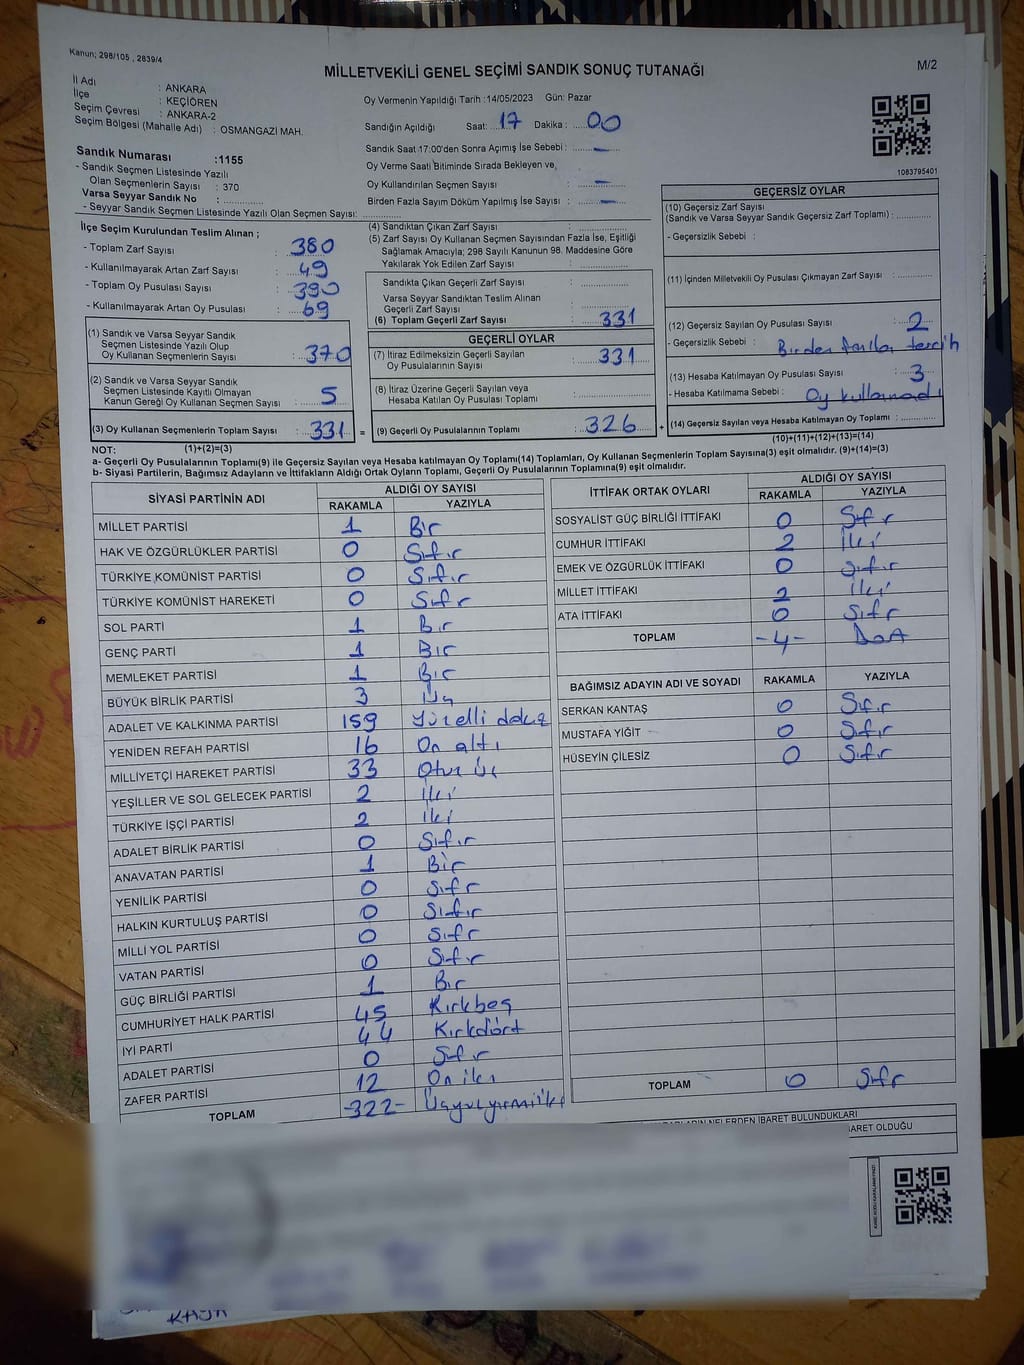 Kanun; 298/105 , 2839/4
M/2
MİLLETVEKİLİ GENEL SEÇİMİ SANDIK SONUÇ TUTANAĞI
İl Adı : ANKARA
İlçe : KEÇİÖREN
Seçim Çevresi : ANKARA-2
Seçim Bölgesi (Mahalle Adı) : OSMANGAZİ MAH.
Sandık Numarası :1155
- Sandık Seçmen Listesinde Yazılı
Olan Seçmenlerin Sayısı : 370
Varsa Seyyar Sandık No :
- Seyyar Sandık Seçmen Listesinde Yazılı Olan Seçmen Sayısı:
Oy Vermenin Yapıldığı Tarih :14/05/2023 Gün: Pazar
Sandığın Açıldığı Saat: 17 Dakika : 00
Sandık Saat 17:00'den Sonra Açımış İse Sebebi : -
Oy Verme Saati Bitiminde Sırada Bekleyen ve,
Oy Kullandırılan Seçmen Sayısı : -
Birden Fazla Sayım Döküm Yapılmış İse Sayısı : -
1083795401
İlçe Seçim Kurulundan Teslim Alınan ;
- Toplam Zarf Sayısı : 380
- Kullanılmayarak Artan Zarf Sayısı : 49
- Toplam Oy Pusulası Sayısı : 390
- Kullanılmayarak Artan Oy Pusulası : 69
(1) Sandık ve Varsa Seyyar Sandık
Seçmen Listesinde Yazılı Olup
Oy Kullanan Seçmenlerin Sayısı : 370
(2) Sandık ve Varsa Seyyar Sandık
Seçmen Listesinde Kayıtlı Olmayan
Kanun Gereği Oy Kullanan Seçmen Sayısı : 5
(3) Oy Kullanan Seçmenlerin Toplam Sayısı : 331 =
(4) Sandıktan Çıkan Zarf Sayısı :
(5) Zarf Sayısı Oy Kullanan Seçmen Sayısından Fazla İse, Eşitliği
Sağlamak Amacıyla; 298 Sayılı Kanunun 98. Maddesine Göre
Yakılarak Yok Edilen Zarf Sayısı :
Sandıkta Çıkan Geçerli Zarf Sayısı :
Varsa Seyyar Sandıktan Teslim Alınan
Geçerli Zarf Sayısı :
(6) Toplam Geçerli Zarf Sayısı : 331
GEÇERLİ OYLAR
(7) İtiraz Edilmeksizin Geçerli Sayılan
Oy Pusulalarının Sayısı : 331
(8) İtiraz Üzerine Geçerli Sayılan veya
Hesaba Katılan Oy Pusulası Toplamı :
(9) Geçerli Oy Pusulalarının Toplamı : 326 +
GEÇERSİZ OYLAR
(10) Geçersiz Zarf Sayısı
(Sandık ve Varsa Seyyar Sandık Geçersiz Zarf Toplamı) :
- Geçersizlik Sebebi :
(11) İçinden Milletvekili Oy Pusulası Çıkmayan Zarf Sayısı :
(12) Geçersiz Sayılan Oy Pusulası Sayısı : 2
- Geçersizlik Sebebi : Birden fazla tercih
(13) Hesaba Katılmayan Oy Pusulası Sayısı : 3
- Hesaba Katılmama Sebebi : Oy kullanmadı
(14) Geçersiz Sayılan veya Hesaba Katılmayan Oy Toplamı :
NOT: (1)+(2)=(3)
(10)+(11)+(12)+(13)=(14)
a- Geçerli Oy Pusulalarının Toplamı(9) ile Geçersiz Sayılan veya Hesaba katılmayan Oy Toplamı(14) Toplamları, Oy Kullanan Seçmenlerin Toplam Sayısına(3) eşit olmalıdır. (9)+(14)=(3)
b- Siyasi Partilerin, Bağımsız Adayların ve İttifakların Aldığı Ortak Oyların Toplamı, Geçerli Oy Pusulalarının Toplamına(9) eşit olmalıdır.
SİYASİ PARTİNİN ADI ALDIĞI OY SAYISI
RAKAMLA YAZIYLA
MİLLET PARTİSİ 1 Bir
HAK VE ÖZGÜRLÜKLER PARTİSİ 0 Sıfır
TÜRKİYE KOMÜNİST PARTİSİ 0 Sıfır
TÜRKİYE KOMÜNİST HAREKETİ 0 Sıfır
SOL PARTİ 1 Bir
GENÇ PARTİ 1 Bir
MEMLEKET PARTİSİ 1 Bir
BÜYÜK BİRLİK PARTİSİ 3 Üç
ADALET VE KALKINMA PARTİSİ 159 Yüzelli dokuz
YENİDEN REFAH PARTİSİ 16 On altı
MİLLİYETÇİ HAREKET PARTİSİ 33 Otuz üç
YEŞİLLER VE SOL GELECEK PARTİSİ 2 İki
TÜRKİYE İŞÇİ PARTİSİ 2 İki
ADALET BİRLİK PARTİSİ 0 Sıfır
ANAVATAN PARTİSİ 1 Bir
YENİLİK PARTİSİ 0 Sıfır
HALKIN KURTULUŞ PARTİSİ 0 Sıfır
MİLLİ YOL PARTİSİ 0 Sıfır
VATAN PARTİSİ 0 Sıfır
GÜÇ BİRLİĞİ PARTİSİ 1 Bir
CUMHURİYET HALK PARTİSİ 45 Kırkbeş
İYİ PARTİ 44 Kırkdört
ADALET PARTİSİ 0 Sıfır
ZAFER PARTİSİ 12 On iki
TOPLAM -322- Üçyüzyirmiiki
İTTİFAK ORTAK OYLARI ALDIĞI OY SAYISI
RAKAMLA YAZIYLA
SOSYALİST GÜÇ BİRLİĞİ İTTİFAKI 0 Sıfır
CUMHUR İTTİFAKI 2 İki
EMEK VE ÖZGÜRLÜK İTTİFAKI 0 Sıfır
MİLLET İTTİFAKI 2 İki
ATA İTTİFAKI 0 Sıfır
TOPLAM -4- Dört
BAĞIMSIZ ADAYIN ADI VE SOYADI RAKAMLA YAZIYLA
SERKAN KANTAŞ 0 Sıfır
MUSTAFA YİĞİT 0 Sıfır
HÜSEYİN ÇİLESİZ 0 Sıfır
TOPLAM 0 Sıfır
NELERDEN İBARET BULUNDUKLARI
BARET OLDUĞU
KAYA